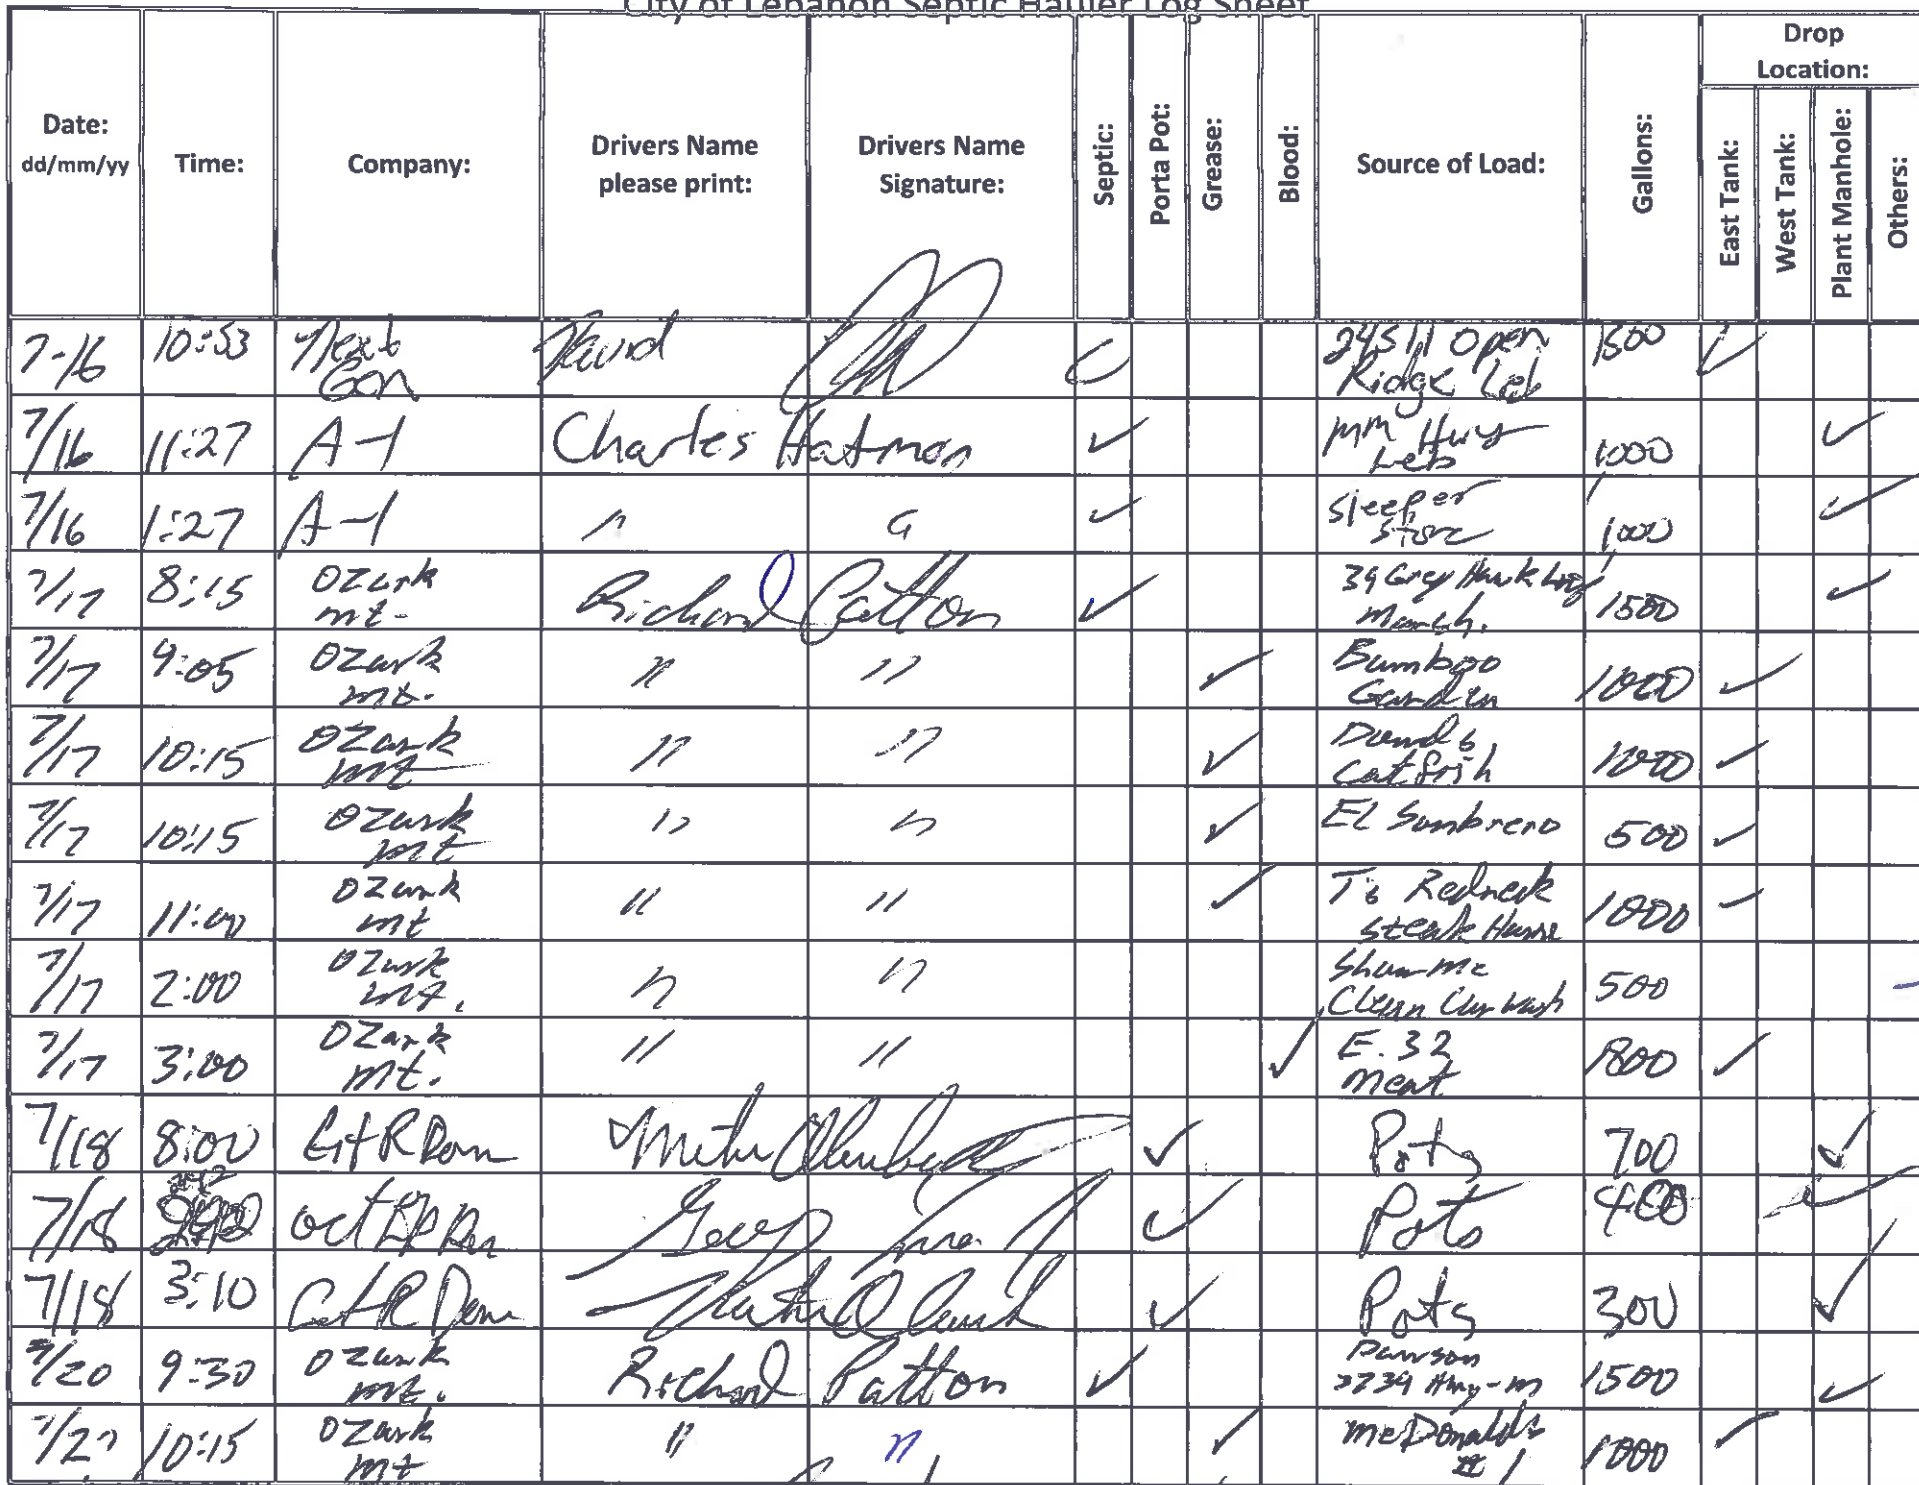 City of Lebanon Septic Hauler Log Sheet
Date: dd/mm/yy Time: Company: Drivers Name please print: Drivers Name Signature: Septic: Porta Pot: Grease: Blood: Source of Load: Gallons: Drop Location: East Tank: West Tank: Plant Manhole: Others:
7-16 10:53 Next Gen David ✓ 24511 Open Ridge Leb 1500 ✓
7/16 11:27 A-1 Charles Hatman ✓ MM Hwy Leb 1000 ✓
7/16 1:27 A-1 " " ✓ Sleeper Store 1000 ✓
7/17 8:15 Ozark mt. Richard Patton ✓ 39 Grey Hawk March. 1500 ✓
7/17 9:05 Ozark mt. " " ✓ Bamboo Garden 1000 ✓
7/17 10:15 Ozark mt " " ✓ Catfish 1000 ✓
7/17 10:15 Ozark mt " " ✓ EL Sombrero 500 ✓
7/17 11:00 Ozark mt " " ✓ Redneck Steak House 1000 ✓
7/17 2:00 Ozark mt. " " Clean Car wash 500
7/17 3:00 Ozark mt. " " ✓ E. 32 meat 800 ✓
7/18 8:00 ✓ Pots 700 ✓
7/18 ✓ Pots 400
7/18 3:10 ✓ Pots 300 ✓
7/20 9:30 Ozark mt. Richard Patton ✓ Hwy-M 1500 ✓
10:15 Ozark mt " " ✓ McDonalds # 1 1000 ✓